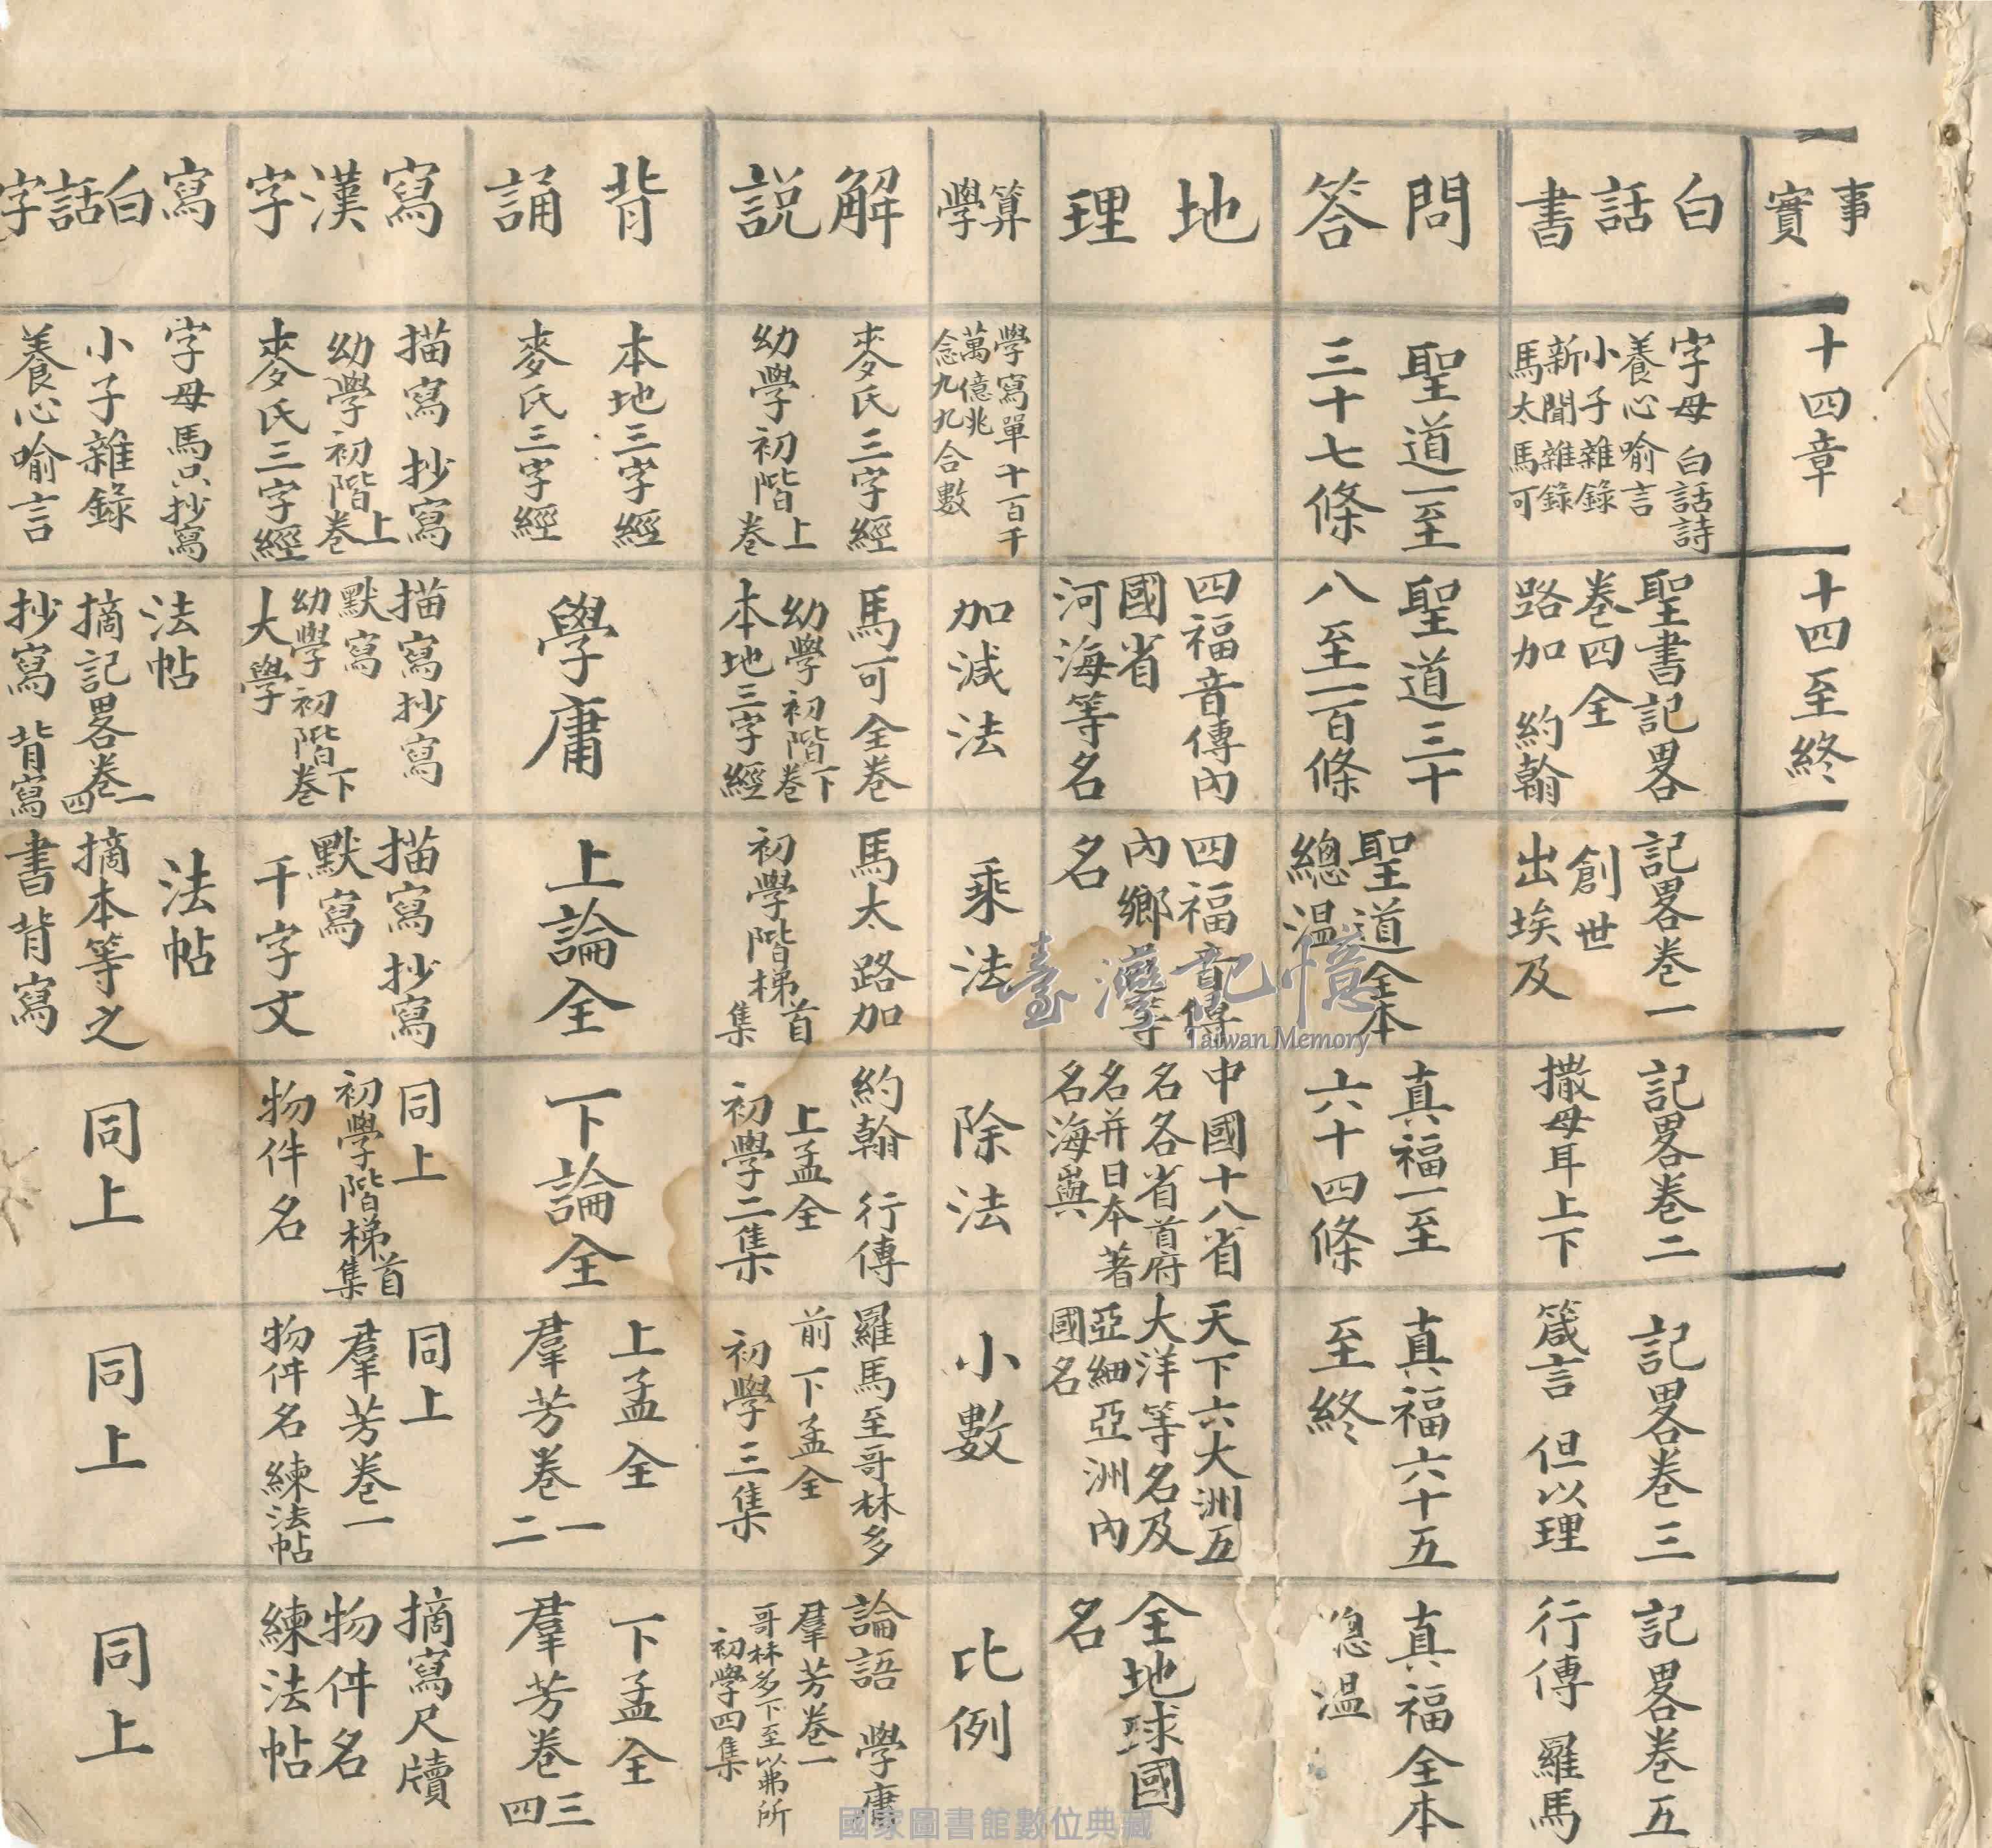 事實
十四章
十四至終
白話書
字母 白話詩
養心喻言
小子雜錄
新聞雜錄
馬太 馬可
聖書記畧
卷四全
路加 約翰
記畧卷一
創世
出埃及
記畧卷二
撒母耳上下
記畧卷三
箴言 但以理
記畧卷五
行傳 羅馬
問答
聖道一至
三十七條
聖道三十
八至一百條
聖道全本
總温
真福一至
六十四條
真福六十五
至終
真福全本
總温
地理
四福音傳內
國省
河海等名
四福音傳
內鄉邑等
名
中國十八省
名各省首府
名并日本著
名海與
天下六大洲五
大洋等名及
亞細亞洲內
國名
全地球國
名
算學
學寫單十百千
萬億兆
念九九合數
加減法
乘法
除法
小數
比例
解說
麥氏三字經
幼學初階上卷
馬可全卷
幼學初階下卷
本地三字經
馬太路加
初學階梯首集
約翰 行傳
上孟全
初學二集
羅馬至哥林多
前 下孟全
初學三集
論語 學庸
羣芳卷一
哥林多下至以弗所
初學四集
背誦
本地三字經
麥氏三字經
學庸
上論全
下論全
上孟全
羣芳卷一二
下孟全
羣芳卷三四
寫漢字
描寫 抄寫
幼學初階上卷
麥氏三字經
描寫抄寫
默寫
幼學初階下卷
大學
描寫抄寫
默寫
千字文
同上
初學階梯首集
物件名
同上
羣芳卷一
物件名 練法帖
摘寫尺牘
物件名
練法帖
寫白話字
字母馬只抄寫
小子雜錄
養心喻言
法帖
摘記畧卷一四
抄寫 背寫
法帖
摘本等之
書背寫
同上
同上
同上
臺灣記憶
Taiwan Memory
國家圖書館數位典藏